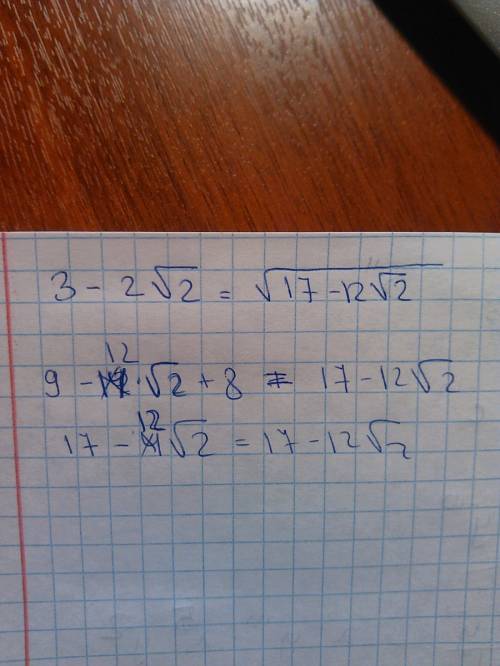 3 - 2√2 = √(17 - 12√2)
9 - 12·√2 + 8 = 17 - 12√2
17 - 12√2 = 17 - 12√2